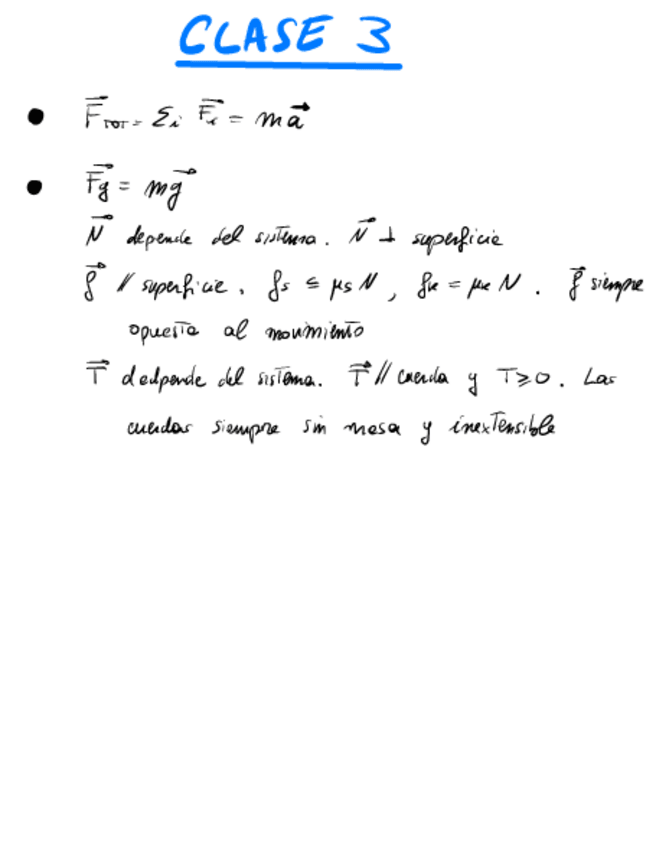 CLASE 3
• F⃗TOT = Σi F⃗i = ma⃗
• F⃗g = mg⃗
N⃗ depende del sistema. N⃗ ⊥ superficie
f⃗ // superficie. fs ≤ μs N, fk = μk N. f⃗ siempre
opuesta al movimiento
T⃗ dedpende del sistema. T⃗ // cuerda y T ≥ 0. Las
cuerdas siempre sin masa y inextensible